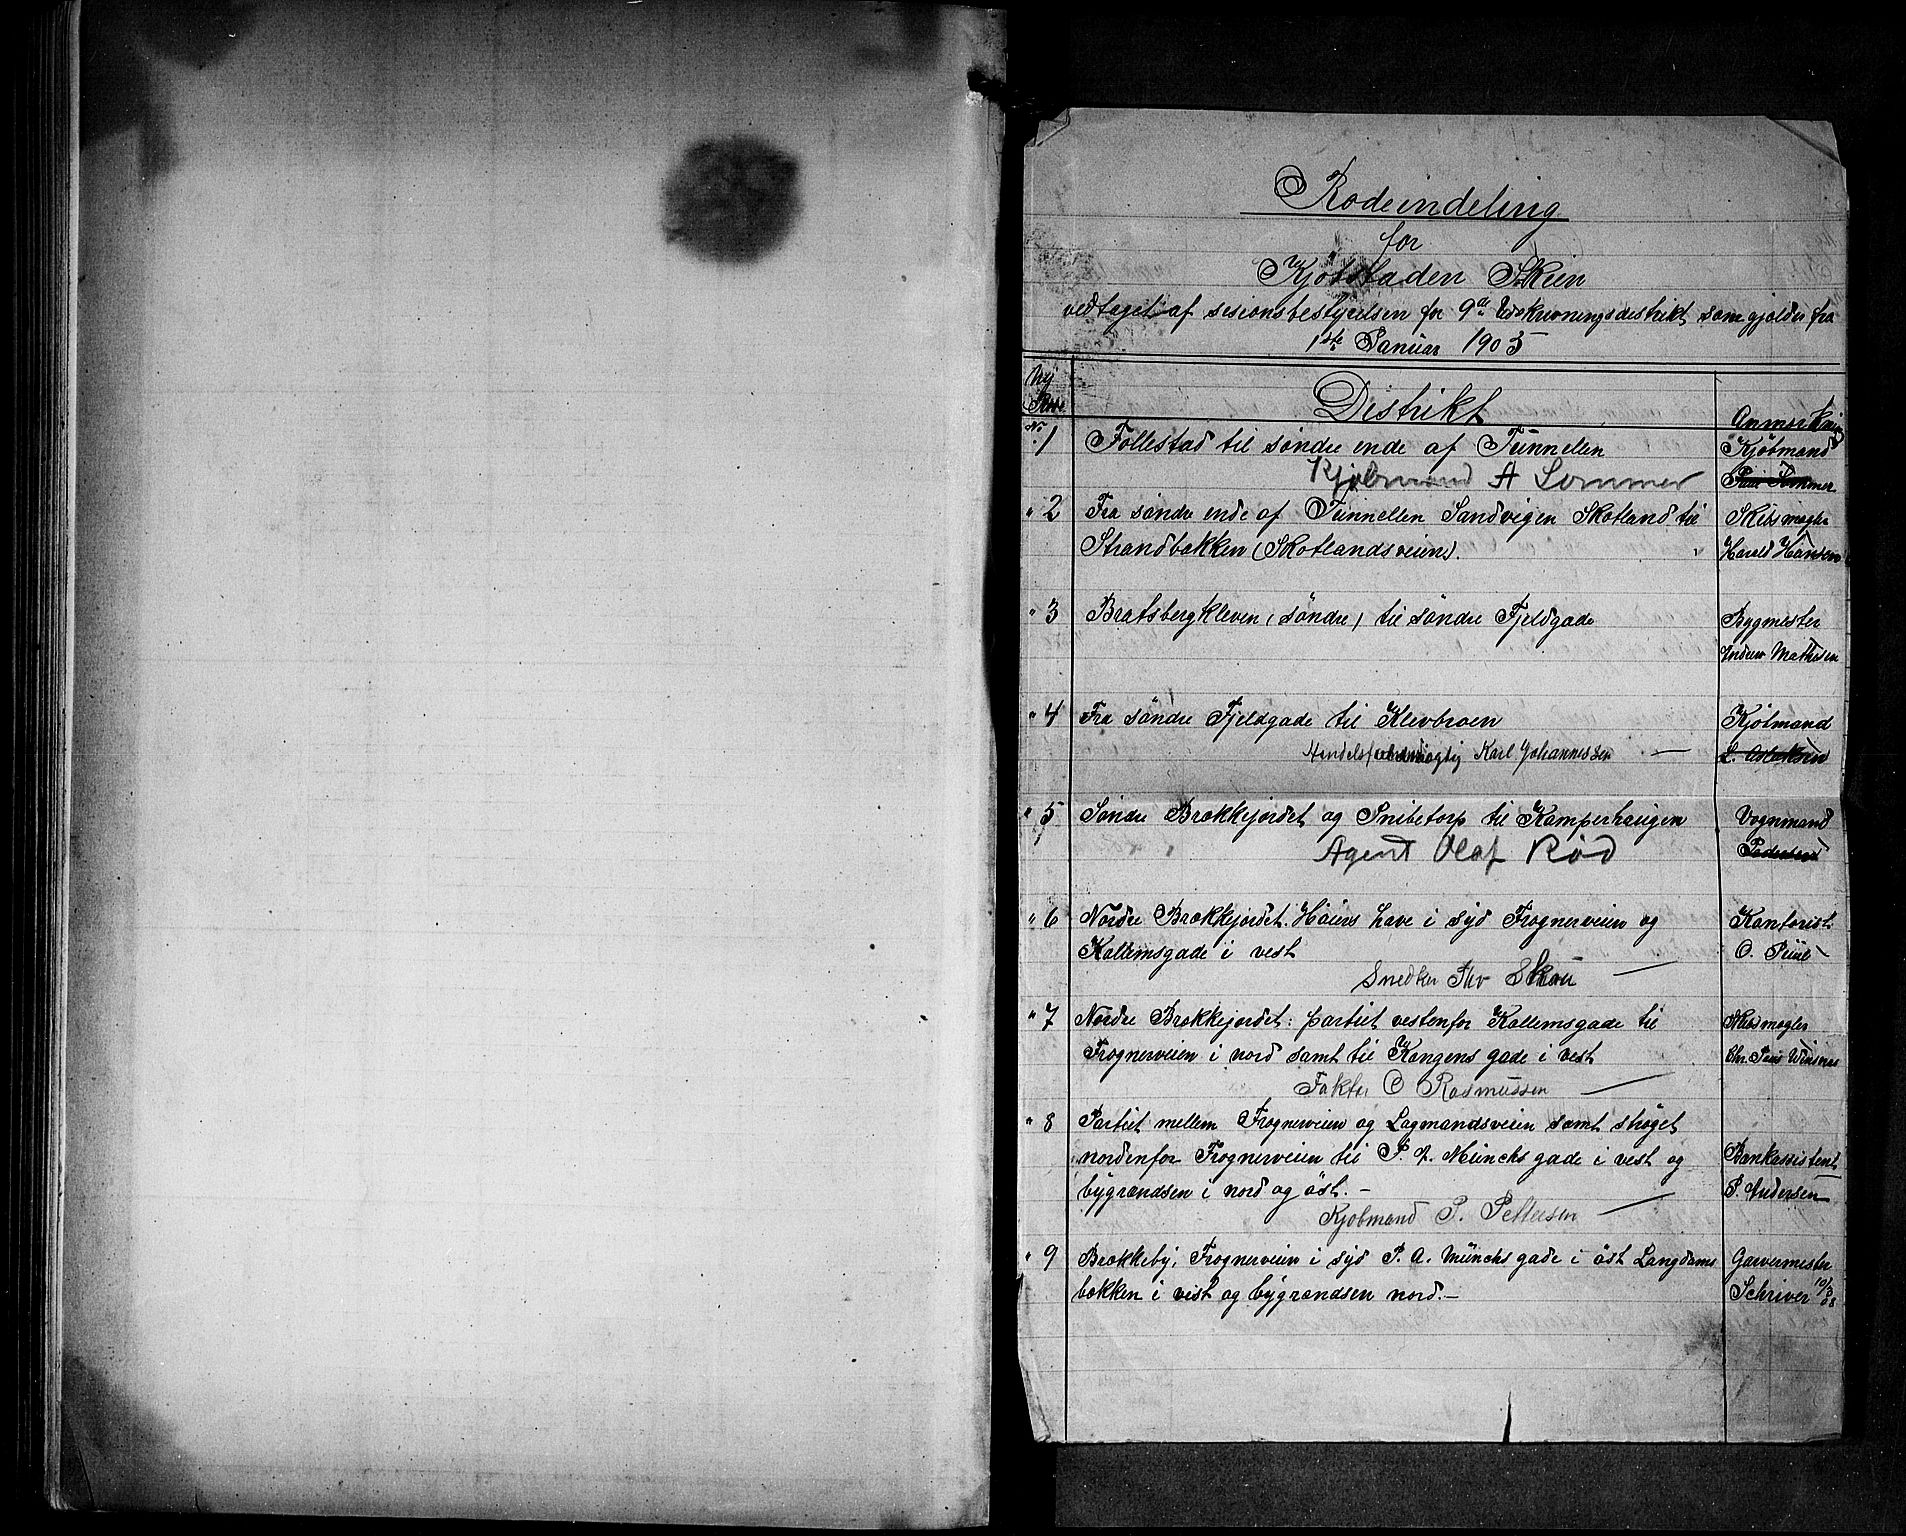 Rodeindeling
for
Kjøbstaden Skien
vedtaget af sesionsbestyrelsen for 9de Udskrivningsdistrikt som gjælder fra
1ste Januar 1905
Ny
Rode
Distrikt
Anmerkning
No. 1 Follestad til søndre ende af Tunnellen Kjøbmand
Kjøbmand A Sommer Paul Sommer
" 2 Fra søndre ende af Tunnellen Sandvigen Skotland til Skibsmægler
Strandbakken (Skotlandsveien). Harald Hansen
" 3 Bratsbergkleven (søndre) til søndre Fjeldgade Bygmester
Andreas Mathisen
" 4 Fra søndre Fjeldgade til Klevbroen Kjøbmand
Handelsfuldmægtig Karl Johannessen — L. Aslaksen
" 5 Søndre Brækkejordet og Snibetorp til Kamperhaugen Vognmand
Agent Olaf Rød Pedersen
" 6 Nordre Brækkejordet: Høiers have i syd Frognerveien og Kontorist
Kallemsgade i vest O.
Snedker Thv Skau —
" 7 Nordre Brækkejordet: partiet vestenfor Kallemsgade til Skibsmægler
Frognerveien i nord samt til Kongens gade i vest Chr. Paus Winsnes
Faktor O Rasmussen —
" 8 Partiet mellem Frognerveien og Lagmandsveien samt strøget
nordenfor Frognerveien til P. A. Münchs gade i vest og Bankassistent
bygrændsen i nord og øst. — P. Andersen
Kjøbmand P. Pettersen —
" 9 Brækkeby, Frognerveien i syd P. A. Münchs gade i øst Langdams Garvermester
bækken i vest og bygrændsen nord. — Schriver 10/3 08